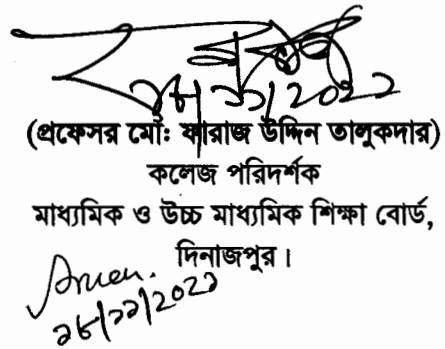 ২৮/১১/২০২২
(প্রফেসর মোঃ ফারাজ উদ্দিন তালুকদার)
কলেজ পরিদর্শক
মাধ্যমিক ও উচ্চ মাধ্যমিক শিক্ষা বোর্ড,
দিনাজপুর।
২৮/১১/২০২২